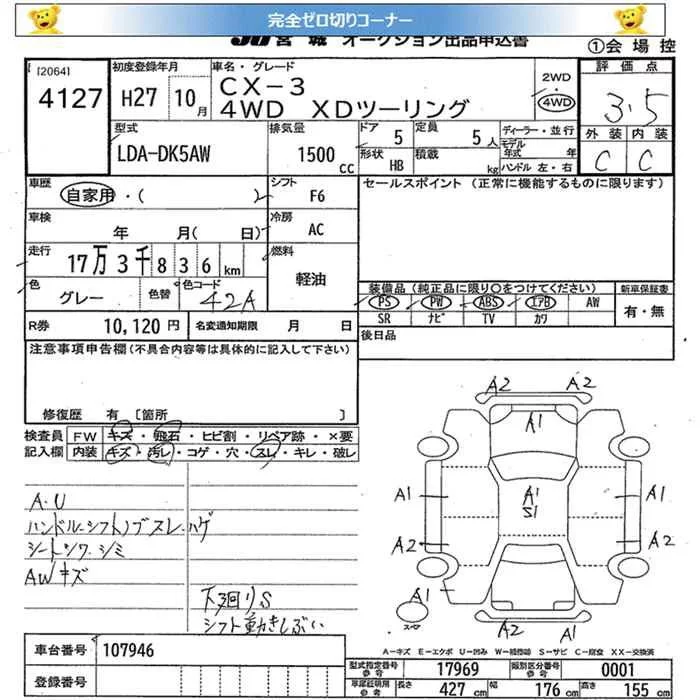 完全ゼロ切りコーナー
JU宮城 オークション出品申込書
①会場控
[2064]
4127
初度登録年月
H27 10月
車名・グレード
CX-3
4WD XDツーリング
2WD
4WD
評価点
3.5
外装 内装
C C
型式
LDA-DK5AW
排気量
1500cc
ドア 5
定員 5人
形状 HB
積載 kg
ディーラー・並行
モデル年式 年
ハンドル 左・右
車歴
自家用・( )
シフト F6
セールスポイント (正常に機能するものに限ります)
車検
年 月( 日)
冷房 AC
走行
17万3千836km
燃料
軽油
色
グレー
色替
色コード
42A
装備品(純正品に限り〇をつけてください)
新車保証書
PS PW ABS エアB AW
SR ナビ TV カワ
有・無
R券 10,120円
名変通知期限 月 日
後日品
注意事項申告欄(不具合内容等は具体的に記入して下さい)
修復歴 有 [箇所 ]
検査員記入欄
FW キズ・飛石・ヒビ割・リペア跡・×要
内装 キズ・汚レ・コゲ・穴・スレ・キレ・破レ
A・U
ハンドル・シフトノブスレ・ハゲ
シートシワ・シミ
AWキズ
下廻りS
シフト動きしぶい
A2 A2
A1
A1 A1 A1
S1
A2 A2
A1
スペア
A2 A1
車台番号 107946
登録番号
A-キズ E-エクボ U-凹み W-補修跡 S-サビ C-腐食 XX-交換済
型式指定番号 参考 17969
類別区分番号 参考 0001
車庫証明用 参考
長さ 427cm
幅 176cm
高さ 155cm